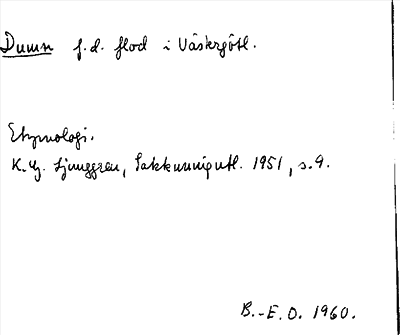 Dumn f.d. flod i Västergötl.
Etymologi.
K.G. Ljunggren, Sakkunnigutl. 1951, s. 9.
B.-E.O. 1960.